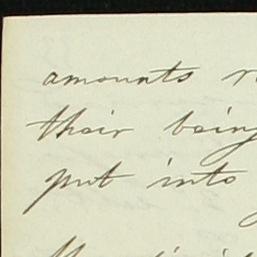 amounts
their being
put into